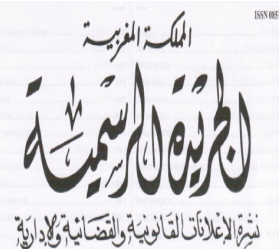 ISSN 0851
المملكة المغربية
الجريدة الرسمية
نشرة الإعلانات القانونية والقضائية والإدارية